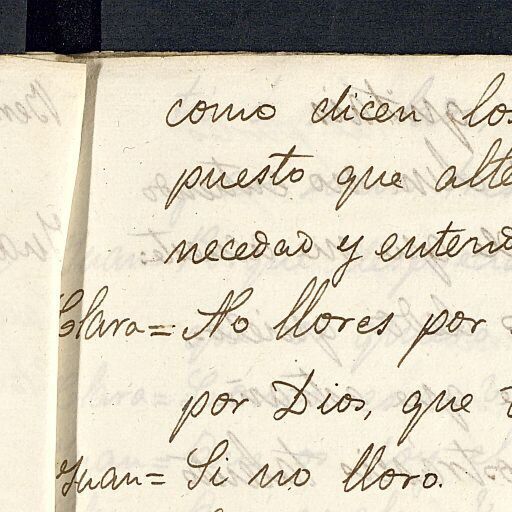 como dicen los
puesto que alte
necedad y entend
Clara = No llores por
por Dios, que
Juan = Si no lloro.